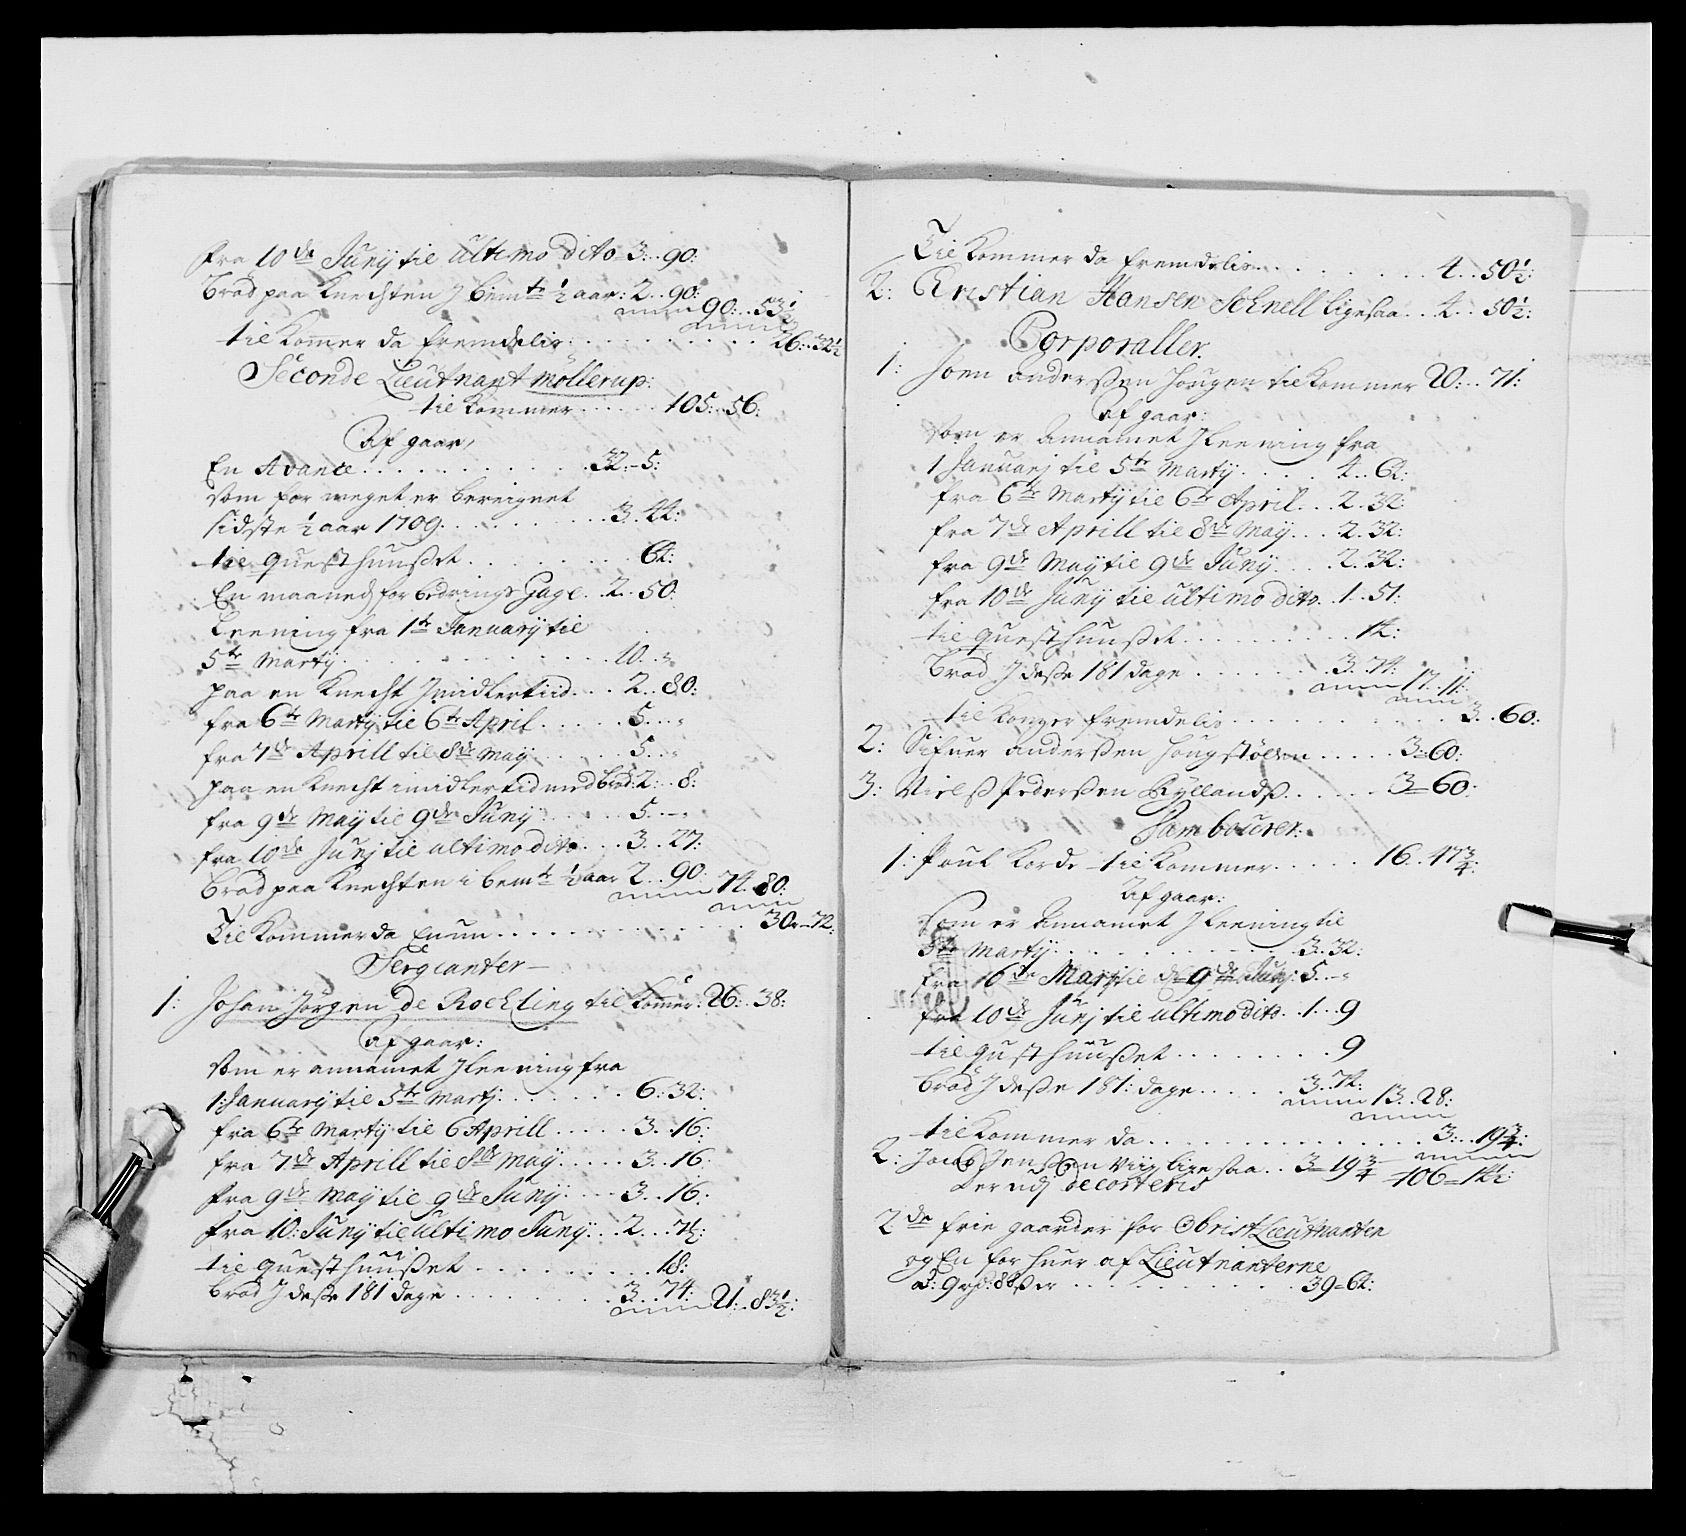 fra 10de Junÿ til ultimo dito 3..90:
brød paa Knechten J bemte ½ aar: 2..90:
90:..53½
til kommer da fremdelis . . . . . . . . . 26:.32½
Seconde Lieutnant Möllerup:
til kommer . . . . . . 105:.56:
Af gaar,
En Avance . . . . . . . . . 32:-5:
som for meget er bereignet
sidste ½ aar 1709 . . . . . . . 3..44:
til questhuußet . . . . . . . 64:
En maaned forbedrings Gage . 2..50:
Leening fra 1te Januarÿ til
5te Martÿ . . . . . . . . . . 10..
paa en Knecht Jmidlertiid . . . 2..80:
fra 6te Martÿ til 6te April . . . . . 5..
fra 7de Aprill til 8de Maÿ . . . . . 5..
paa en Knecht imidlertid med brød: 2:..8:
fra 9de Maÿ til 9de Junÿ . . . . . 5..
fra 10de Junj til ultimo dito . . . 3..27:
brød paa Knechten i bemte ½ aar 2..90:
74.80:
Til kommer da Enuu . . . . . . . . . . . 30-72:
Sergianter
1: Johan Jörgen de Röckling til kommer: 26:.38:
Af gaar:
som er annamet J Leening fra
1: Januarÿ til 5te Martj . . . . . . 6:.32:
fra 6te Martÿ til 6 Aprill . . . . . 3..16:
fra 7de Aprill til 8de Maÿ . . . . . 3..16:
fra 9de Maÿ til 9de Junÿ . . . . 3..16:
fra 10: Junÿ til ultimo Junÿ . . 2...
til questhuußet . . . . . . . . . 18:
brød J deße 181 dage . . . . . . . 3..74:
21:.83½:
Til kommer da fremdelis . . . . . . . . 4..50½:
2: Cristian Hansen Schnell ligesaa . . 4..50½:
Corporaller.
1: Joen Anderßen Hougen til kommer 20:..71:
Af gaar:
som er Annamet J Leening fra
1 Januarj til 5te Martÿ . . . . 4..64:
fra 6te Martÿ til 6te April . . 2.32:
fra 7de Aprill til 8de Maÿ . . . 2.32:
fra 9de Maÿ til 9de Junÿ . . . 2.32:
fra 10de Junÿ til ultimo dito . 1..51:
til questhuußet . . . . . . . . . 14:
brød J deße 181 dage . . . . . . . 3..74:
17..11:
til kommer fremdelis . . . . . . . . . . 3..60:
2: Sifuer Anderßen Hougstölen . . . . . 3=60:
3: Nielß Pederßen Byllandß . . . . . 3=60:
Tambourer:
1: Poul Korde til kommer . . . . . 16..47¾:
Af gaar:
Som er Annamet J Leening til
5te Martÿ . . . . . . . . . . . 3.32:
fra 6de Martj til d 9de Junj: 5.-
fra 10de Junj til ultimo dito . . 1..9
til qusthuußet . . . . . . . . . 9
brød J deße 181: dage . . . . . 3..74:
13..28:
til kommer da . . . . . . . . . . . . . . . 3:..19¾:
2: Jacob Jenßen Viig ligesaa . . 3=19¾ 106=14½:
Her udj decorteris
2de frie gaarder for Obrist Lieutnanten
og En for huer af Lieutnanterne
a: 9 rd: 88 ß er . . . . . . . . . . . 39=64: